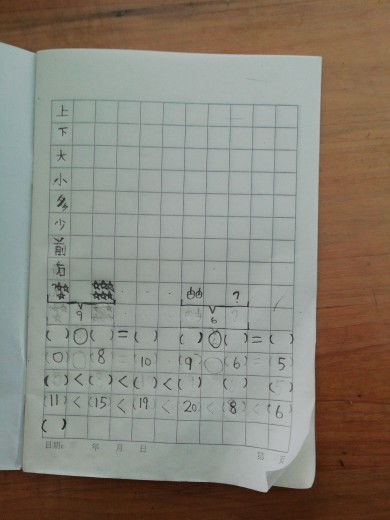 上
下
大
小
多
少
前
右
?
9 6
( ) ○ ( ) = ( ) ( ) ○ ( ) = ( )
0 8 10 9 ○ 6 = 5
( ) < ( ) < ( ) < ( ) ( ) ( )
11 < 15 < 19 < 20 < 8 < 6
( )
日期: 年 月 日 第 页